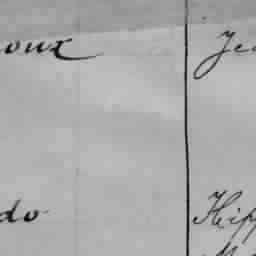 oux Je
do Hipp